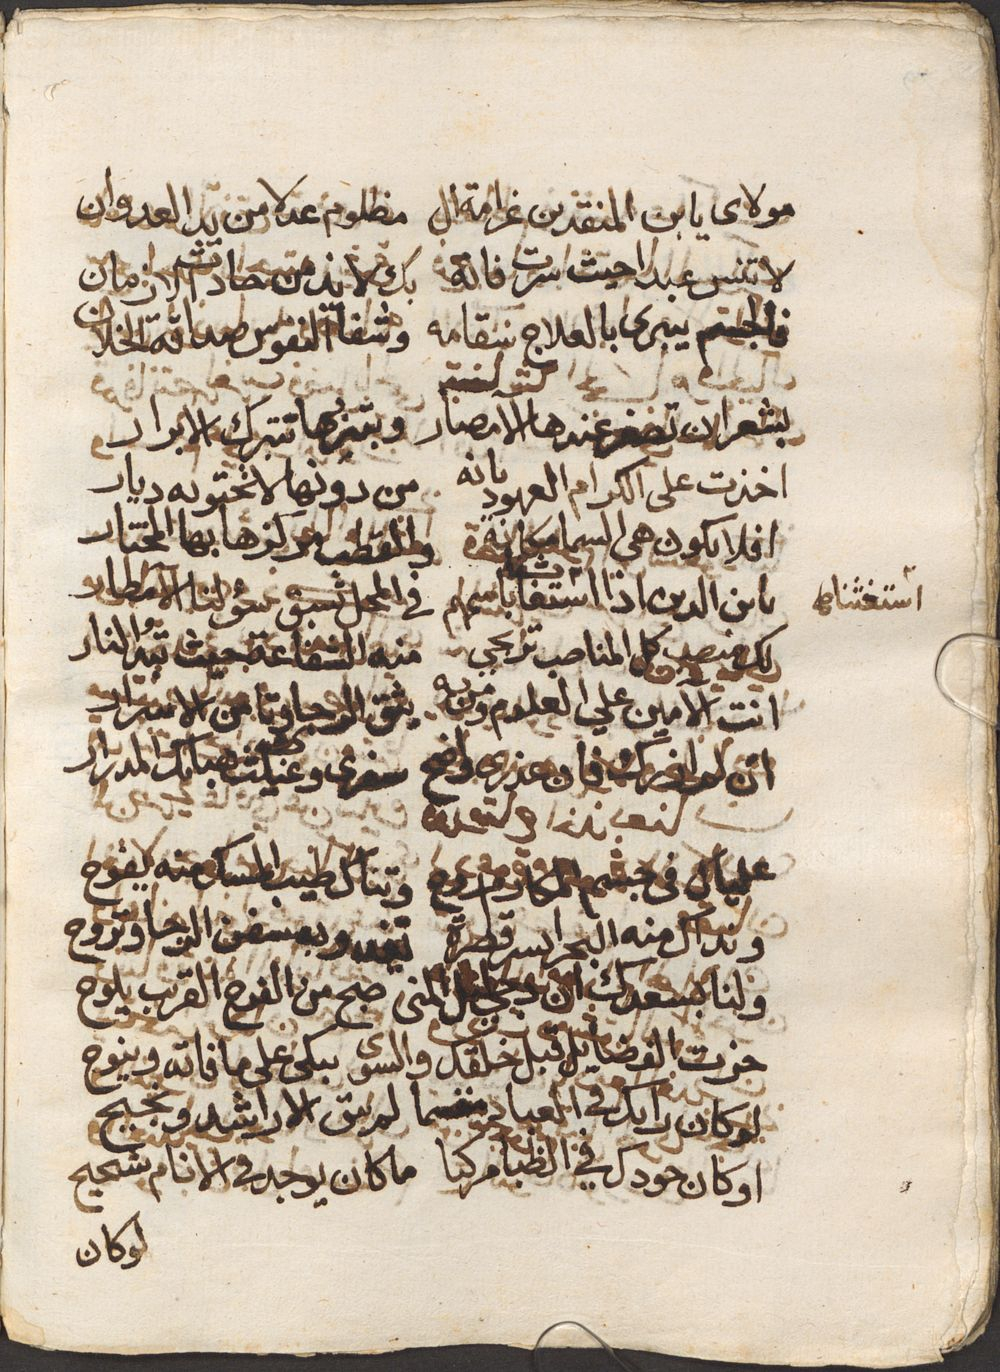 مولاى يا ابن المنقذين غرامة ال مظلوم عدلا من يد العدوان
لا تنس عبدا حيث اسرت فانه بك لائذ من حادث الازمان
فالجسم يبرى بالعلاج سقامه وشفا النفوس صداقة الخلان
بشعر الان تصغر عندها الامصار وبتربها تتبرك الابرار
اخذت على الكرام العهود بانه من دونها لا تحتويه ديار
افلا يكون هي السما مكانة والقطب مركزها بها المختار
يا بن الذين اذا استغاثنا باسمهم في المحل تسبق نحونا الامطار
استغثنا
لك منصب كل المناصب ترتجي منه الشفاعة حيث تبدو النار
انت الامين علي العلوم ومن به يثق الرجا وتامن الاسرار
ان لم ازرك فان عذرى واضح سفرى وغيث هباتك المدرار
علياك في جسم المكارم روح وثناك طيب المسك منه يفوح
ونداك منه البحر ايسر قطرة تغدو به سفن الرجا وتروح
ولنا بسعدك ان دجى ليل المنى صبح من الفرج القريب يلوح
حزت الفضايل قبل خلقك والسوى يبكي على ما فاته وينوح
لو كان رايك في العباد مقسما لم يبق الا راشد ونجيح
او كان جودك في الظبا مركبا ما كان يوجد في الانام شحيح
لو كان